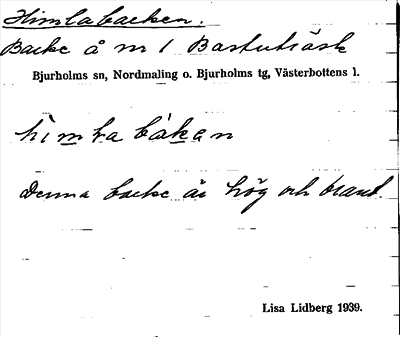 Himlabacken.
Backe å m 1 Bastuträsk
Bjurholms sn, Nordmaling o. Bjurholms tg, Västerbottens l.
himla bakan
Denna backe är hög och brant.
Lisa Lidberg 1939.